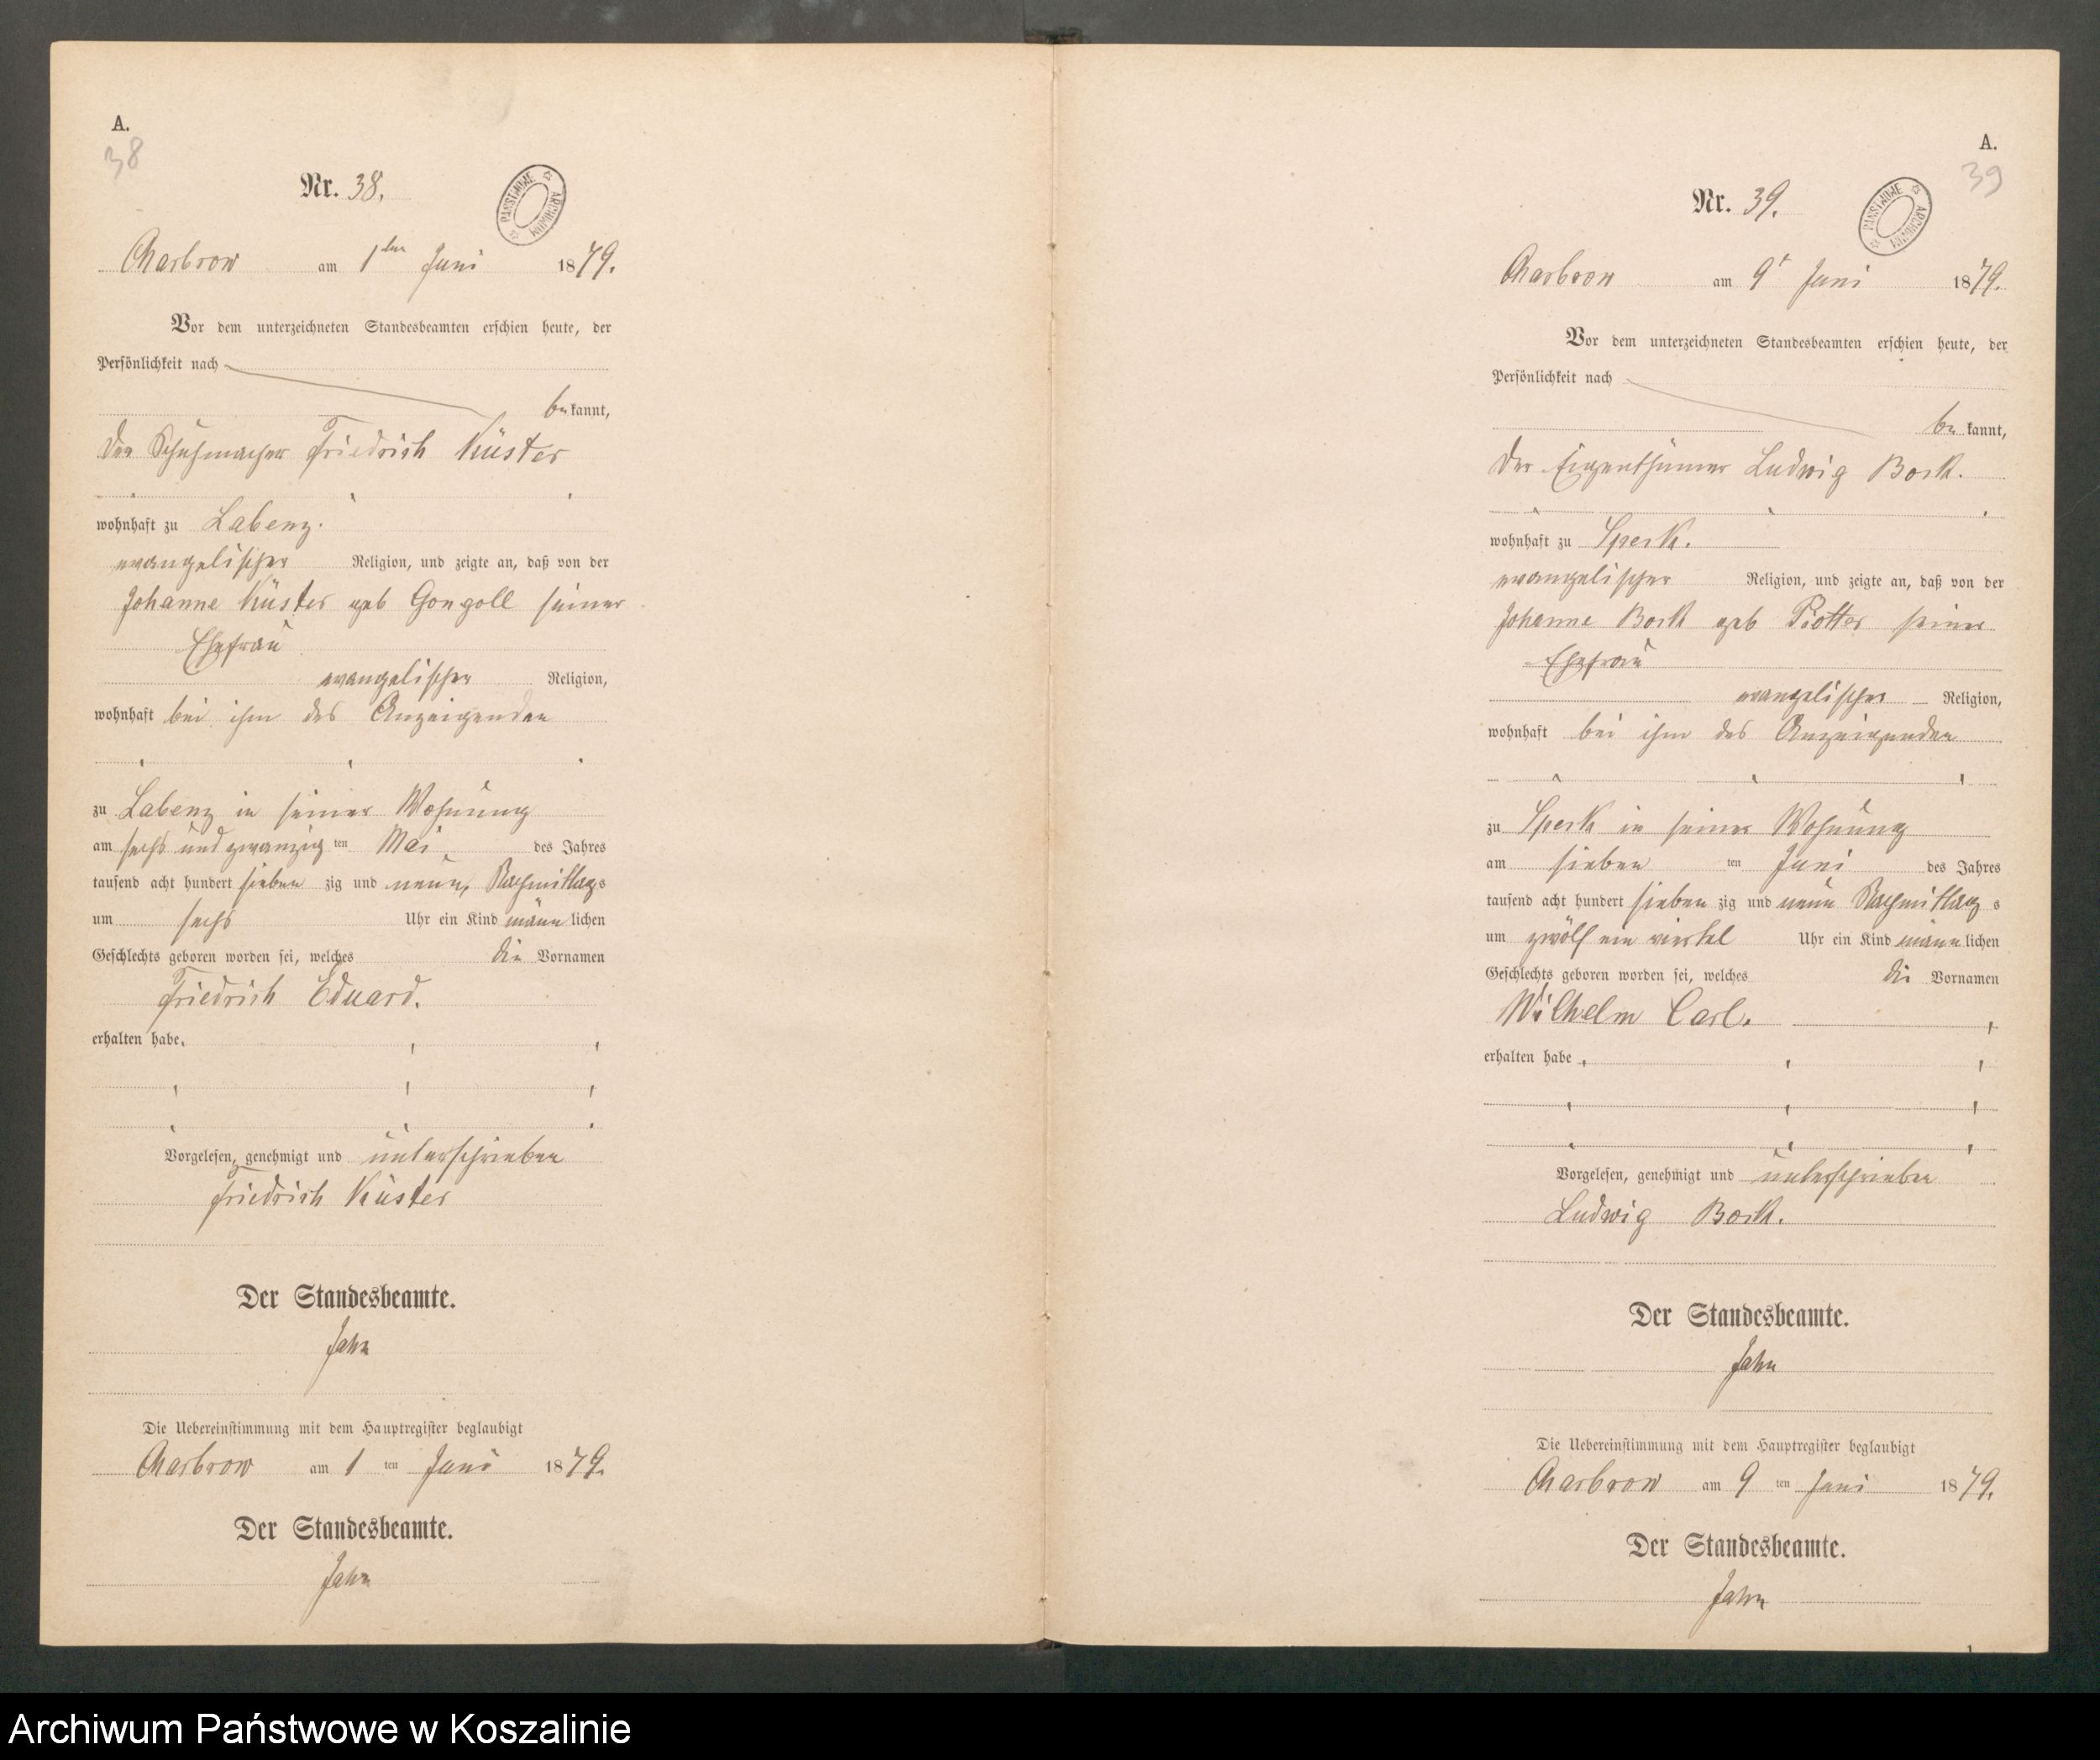 A.
38
Nr. 38.
PAŃSTWOWE ARCHIWUM
Charbrow am 1ten Juni 1879.
Vor dem unterzeichneten Standesbeamten erschien heute, der
Persönlichkeit nach
bekannt,
Der Schuhmacher Friedrich Küster
wohnhaft zu Labenz.
evangelischer Religion, und zeigte an, daß von der
Johanne Küster geb Gongoll seiner
Ehefrau
evangelischer Religion,
wohnhaft bei ihm des Anzeigenden
zu Labenz in seiner Wohnung
am sechs und zwanzig ten Mai des Jahres
tausend acht hundert sieben zig und neun, Nachmittags
um sechs Uhr ein Kind männlichen
Geschlechts geboren worden sei, welches die Vornamen
Friedrich Eduard.
erhalten habe.
Vorgelesen, genehmigt und unterschrieben
Friedrich Küster
Der Standesbeamte.
Jahn
Die Uebereinstimmung mit dem Hauptregister beglaubigt
Charbrow am 1 ten Juni 1879.
Der Standesbeamte.
Jahn
A.
39
Nr. 39.
PAŃSTWOWE ARCHIWUM
Charbrow am 9t Juni 1879.
Vor dem unterzeichneten Standesbeamten erschien heute, der
Persönlichkeit nach
bekannt,
Der Eigenthümer Ludwig Bork.
wohnhaft zu Speck.
evangelischer Religion, und zeigte an, daß von der
Johanne Bork geb seiner
Ehefrau
evangelischer Religion,
wohnhaft bei ihm des Anzeigenden
zu Speck in seiner Wohnung
am sieben ten Juni des Jahres
tausend acht hundert sieben zig und neun Nachmittag s
um zwölf ein viertel Uhr ein Kind männlichen
Geschlechts geboren worden sei, welches die Vornamen
Wilhelm Carl.
erhalten habe
Vorgelesen, genehmigt und unterschrieben
Ludwig Bork.
Der Standesbeamte.
Jahn
Die Uebereinstimmung mit dem Hauptregister beglaubigt
Charbrow am 9 ten Juni 1879.
Der Standesbeamte.
Jahn
Archiwum Państwowe w Koszalinie